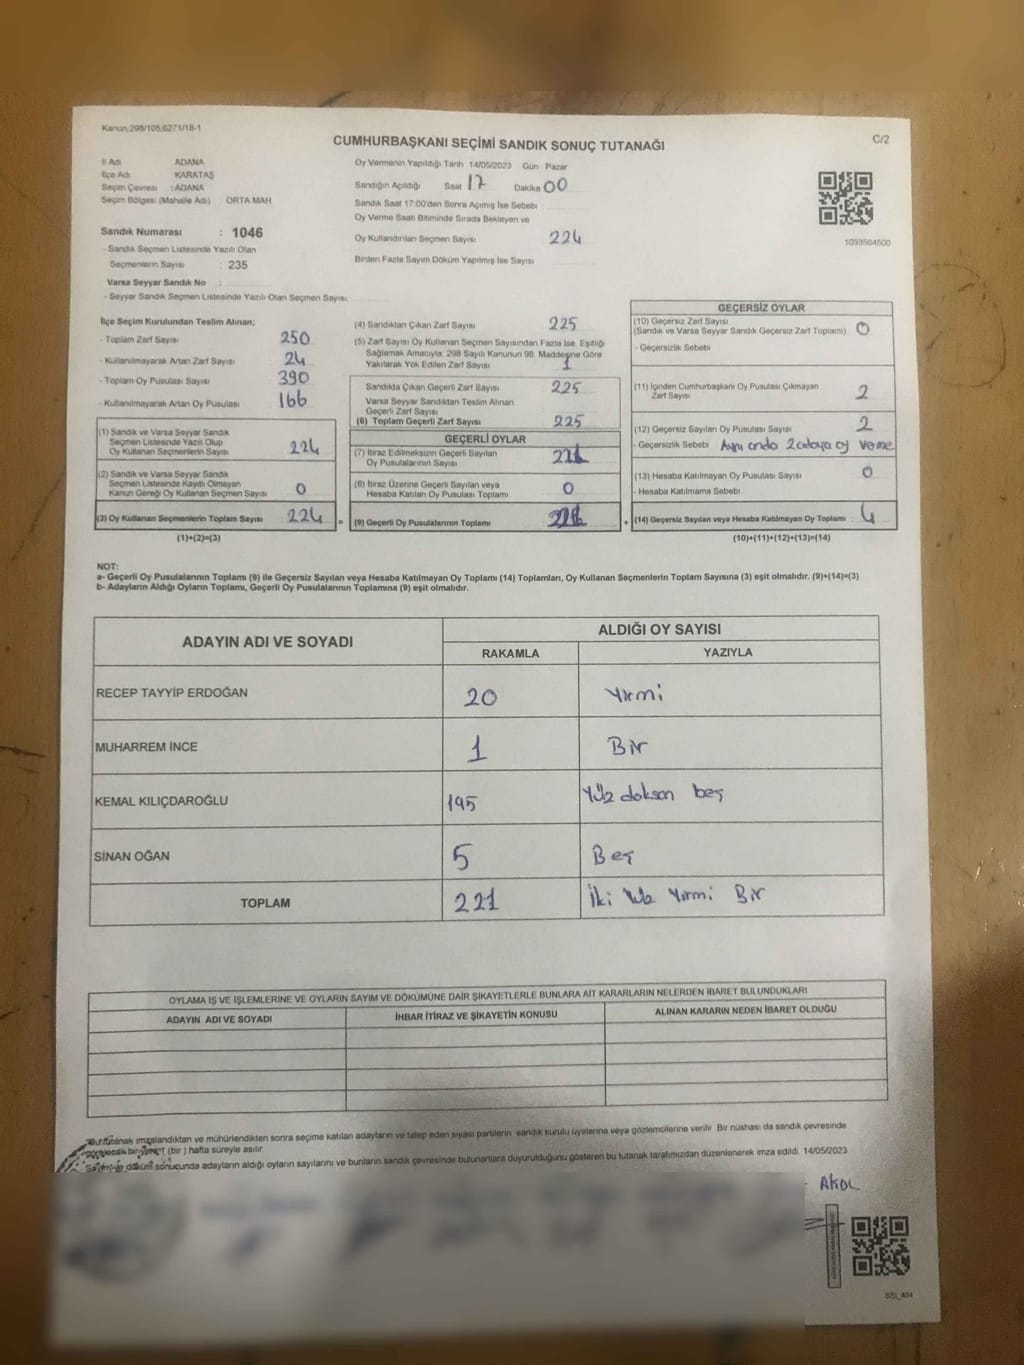 Kanun;298/105;6271/18-1
CUMHURBAŞKANI SEÇİMİ SANDIK SONUÇ TUTANAĞI
C/2
İl Adı ADANA
İlçe Adı KARATAŞ
Seçim Çevresi : ADANA
Seçim Bölgesi (Mahalle Adı) ORTA MAH
Sandık Numarası : 1046
- Sandık Seçmen Listesinde Yazılı Olan
Seçmenlerin Sayısı : 235
Varsa Seyyar Sandık No :
- Seyyar Sandık Seçmen Listesinde Yazılı Olan Seçmen Sayısı:
Oy Vermenin Yapıldığı Tarih 14/05/2023 Gün Pazar
Sandığın Açıldığı Saat 17 Dakika 00
Sandık Saat 17:00'den Sonra Açımış İse Sebebi
Oy Verme Saati Bitiminde Sırada Bekleyen ve
Oy Kullandırılan Seçmen Sayısı 224
Birden Fazla Sayım Döküm Yapılmış İse Sayısı
1093564500
İlçe Seçim Kurulundan Teslim Alınan;
- Toplam Zarf Sayısı 250
- Kullanılmayarak Artan Zarf Sayısı 24
- Toplam Oy Pusulası Sayısı 390
- Kullanılmayarak Artan Oy Pusulası 166
(1) Sandık ve Varsa Seyyar Sandık
Seçmen Listesinde Yazılı Olup
Oy Kullanan Seçmenlerin Sayısı 224
(2) Sandık ve Varsa Seyyar Sandık
Seçmen Listesinde Kayıtlı Olmayan
Kanun Gereği Oy Kullanan Seçmen Sayısı 0
(3) Oy Kullanan Seçmenlerin Toplam Sayısı 224
(1)+(2)=(3)
(4) Sandıktan Çıkan Zarf Sayısı 225
(5) Zarf Sayısı Oy Kullanan Seçmen Sayısından Fazla İse, Eşitliği
Sağlamak Amacıyla, 298 Sayılı Kanunun 98. Maddesine Göre
Yakılarak Yok Edilen Zarf Sayısı 1
Sandıkta Çıkan Geçerli Zarf Sayısı 225
Varsa Seyyar Sandıktan Teslim Alınan
Geçerli Zarf Sayısı
(6) Toplam Geçerli Zarf Sayısı 225
GEÇERLİ OYLAR
(7) İtiraz Edilmeksizin Geçerli Sayılan
Oy Pusulalarının Sayısı
(8) İtiraz Üzerine Geçerli Sayılan veya
Hesaba Katılan Oy Pusulası Toplamı 0
= (9) Geçerli Oy Pusulalarının Toplamı
GEÇERSİZ OYLAR
(10) Geçersiz Zarf Sayısı
(Sandık ve Varsa Seyyar Sandık Geçersiz Zarf Toplamı) 0
- Geçersizlik Sebebi
(11) İçinden Cumhurbaşkanı Oy Pusulası Çıkmayan
Zarf Sayısı 2
(12) Geçersiz Sayılan Oy Pusulası Sayısı 2
- Geçersizlik Sebebi Aynı anda 2 adaya oy verme
(13) Hesaba Katılmayan Oy Pusulası Sayısı 0
- Hesaba Katılmama Sebebi
+ (14) Geçersiz Sayılan veya Hesaba Katılmayan Oy Toplamı 4
(10)+(11)+(12)+(13)=(14)
NOT:
a- Geçerli Oy Pusulalarının Toplamı (9) ile Geçersiz Sayılan veya Hesaba Katılmayan Oy Toplamı (14) Toplamları, Oy Kullanan Seçmenlerin Toplam Sayısına (3) eşit olmalıdır. (9)+(14)=(3)
b- Adayların Aldığı Oyların Toplamı, Geçerli Oy Pusulalarının Toplamına (9) eşit olmalıdır.
ADAYIN ADI VE SOYADI ALDIĞI OY SAYISI
RAKAMLA YAZIYLA
RECEP TAYYİP ERDOĞAN 20 Yirmi
MUHARREM İNCE 1 Bir
KEMAL KILIÇDAROĞLU 195 Yüz doksan beş
SİNAN OĞAN 5 Beş
TOPLAM 221 İki Yüz Yirmi Bir
OYLAMA İŞ VE İŞLEMLERİNE VE OYLARIN SAYIM VE DÖKÜMÜNE DAİR ŞİKAYETLERLE BUNLARA AİT KARARLARIN NELERDEN İBARET BULUNDUKLARI
ADAYIN ADI VE SOYADI İHBAR İTİRAZ VE ŞİKAYETİN KONUSU ALINAN KARARIN NEDEN İBARET OLDUĞU
Bu tutanak imzalandıktan ve mühürlendikten sonra seçime katılan adayların ve talep eden siyasi partilerin sandık kurulu üyelerine veya gözlemcilerine verilir. Bir nüshası da sandık çevresinde
bir (bir) hafta süreyle asılır.
Sayım ve döküm sonucunda adayların aldığı oyların sayılarını ve bunların sandık çevresinde bulunanlara duyurulduğunu gösteren bu tutanak tarafımızdan düzenlenerek imza edildi. 14/05/2023
AKOL